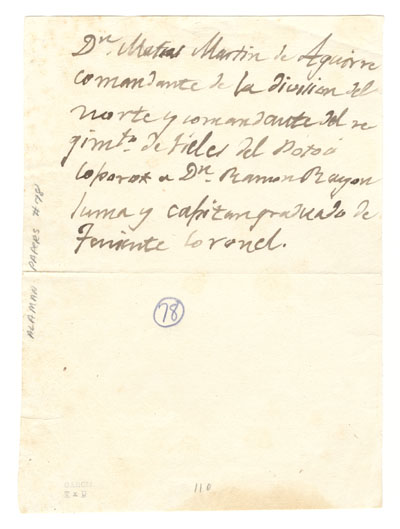 Dn. Matias Martin de Aguirre
comandante de la division del
norte y comandante del re
gimto. de Fieles del Potosi
a Dn. Ramon Rayon
y capitan graduado de
Teniente Coronel.
78
ALAMAN PAPERS #78
110